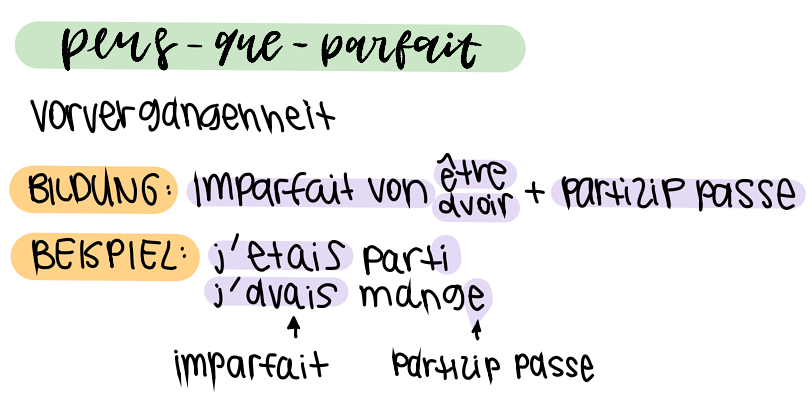 peus-que-parfait
vorvergangenheit
BILDUNG: imparfait von être + partizip passe
avoir
BEISPIEL: j'etais parti
j'avais mange
imparfait partizip passe